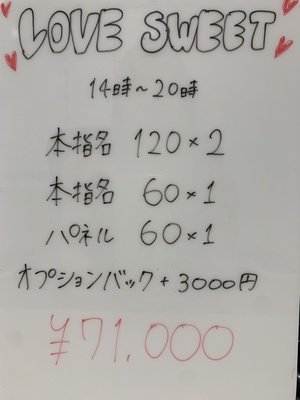 LOVE SWEET
14時~20時
本指名 120×2
本指名 60×1
パネル 60×1
オプションバック + 3000円
¥71.000